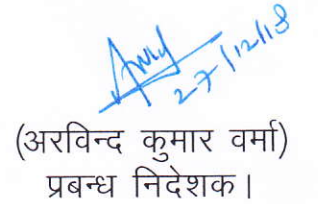 27/12/18
(अरविन्द कुमार वर्मा)
प्रबन्ध निदेशक।